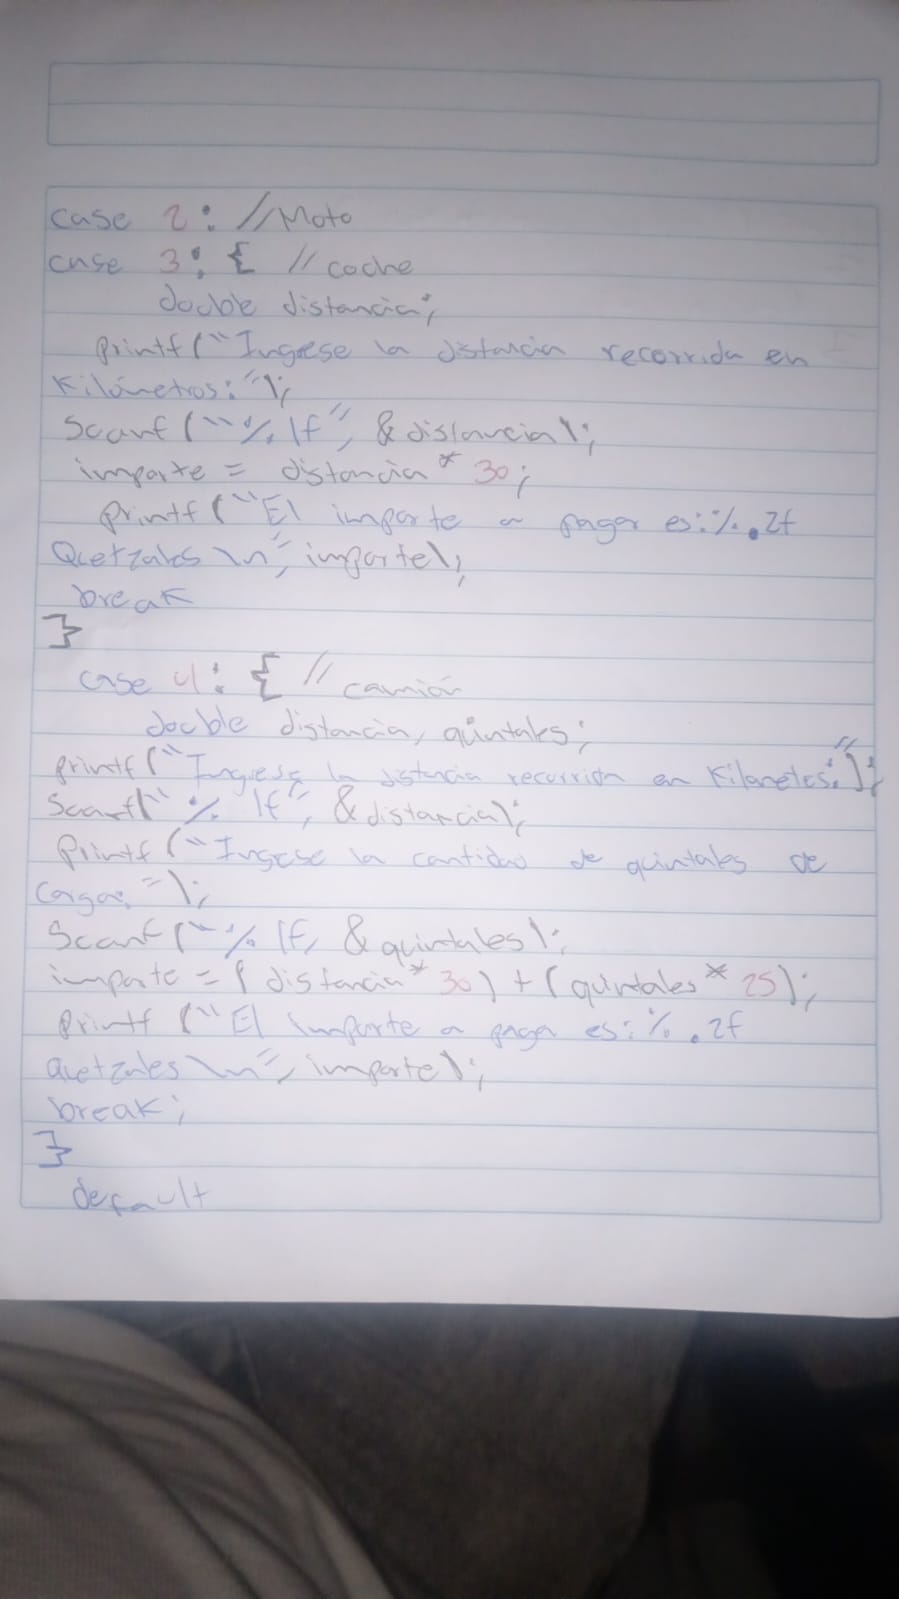 case 2: //Moto
case 3: { // coche
double distancia;
printf("Ingrese la distancia recorrida en
Kilómetros:");
Scanf("%lf", &distancia);
importe = distancia * 30;
printf("El importe a pagar es:%.2f
Quetzales \n", importe);
break
}
case 4: { // camión
double distancia, quintales;
printf("Ingrese la distancia recorrida en Kilometros:");
Scanf("%lf", &distancia);
Printf("Ingese la cantidad de quintales de
Carga: ");
Scanf("%lf, &quintales);
importe = (distancia * 30) + (quintales * 25);
Printf("El importe a paga es:%.2f
Quetzales \n", importe);
break;
}
default